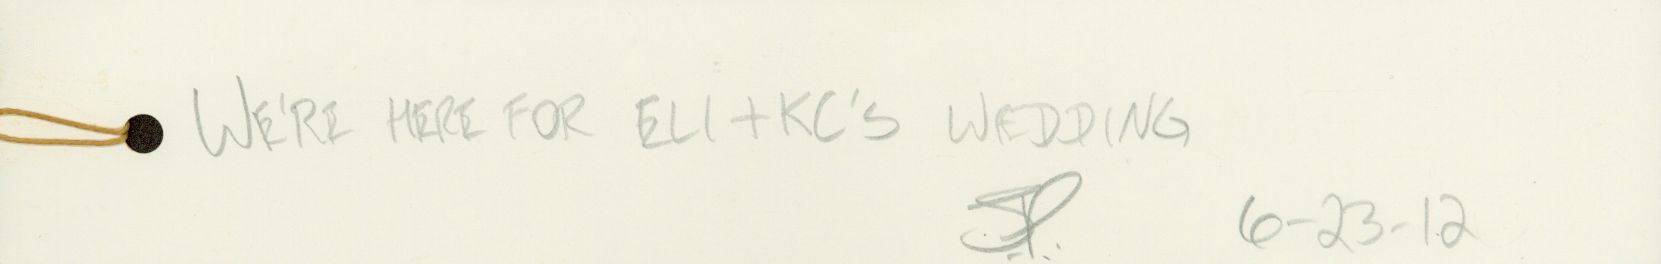 WE'RE HERE FOR ELI + KC'S WEDDING
6-23-12